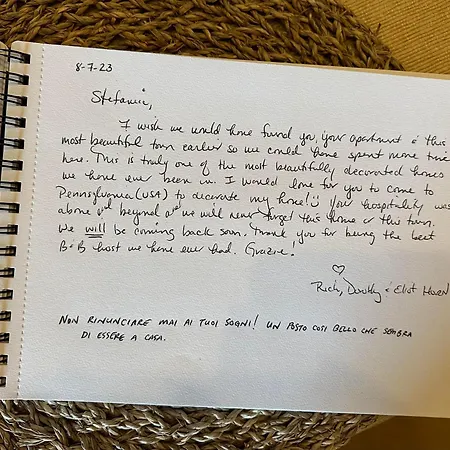 8-7-23
Stefania,
I wish we would have found you, your apartment & this
most beautiful town earlier so we could have spent more time
here. This is truly one of the most beautifully decorated homes
we have ever been in. I would love for you to come to
Pennsylvania (USA) to decorate my home!! Your hospitality was
above and beyond and we will never forget this home or this town.
We will be coming back soon. Thank you for being the best
B+B host we have ever had. Grazie!
Rich, & Eliot
NON RINUNCIARE MAI AI TUOI SOGNI! UN POSTO COSI BELLO CHE SEMBRA
DI ESSERE A CASA.